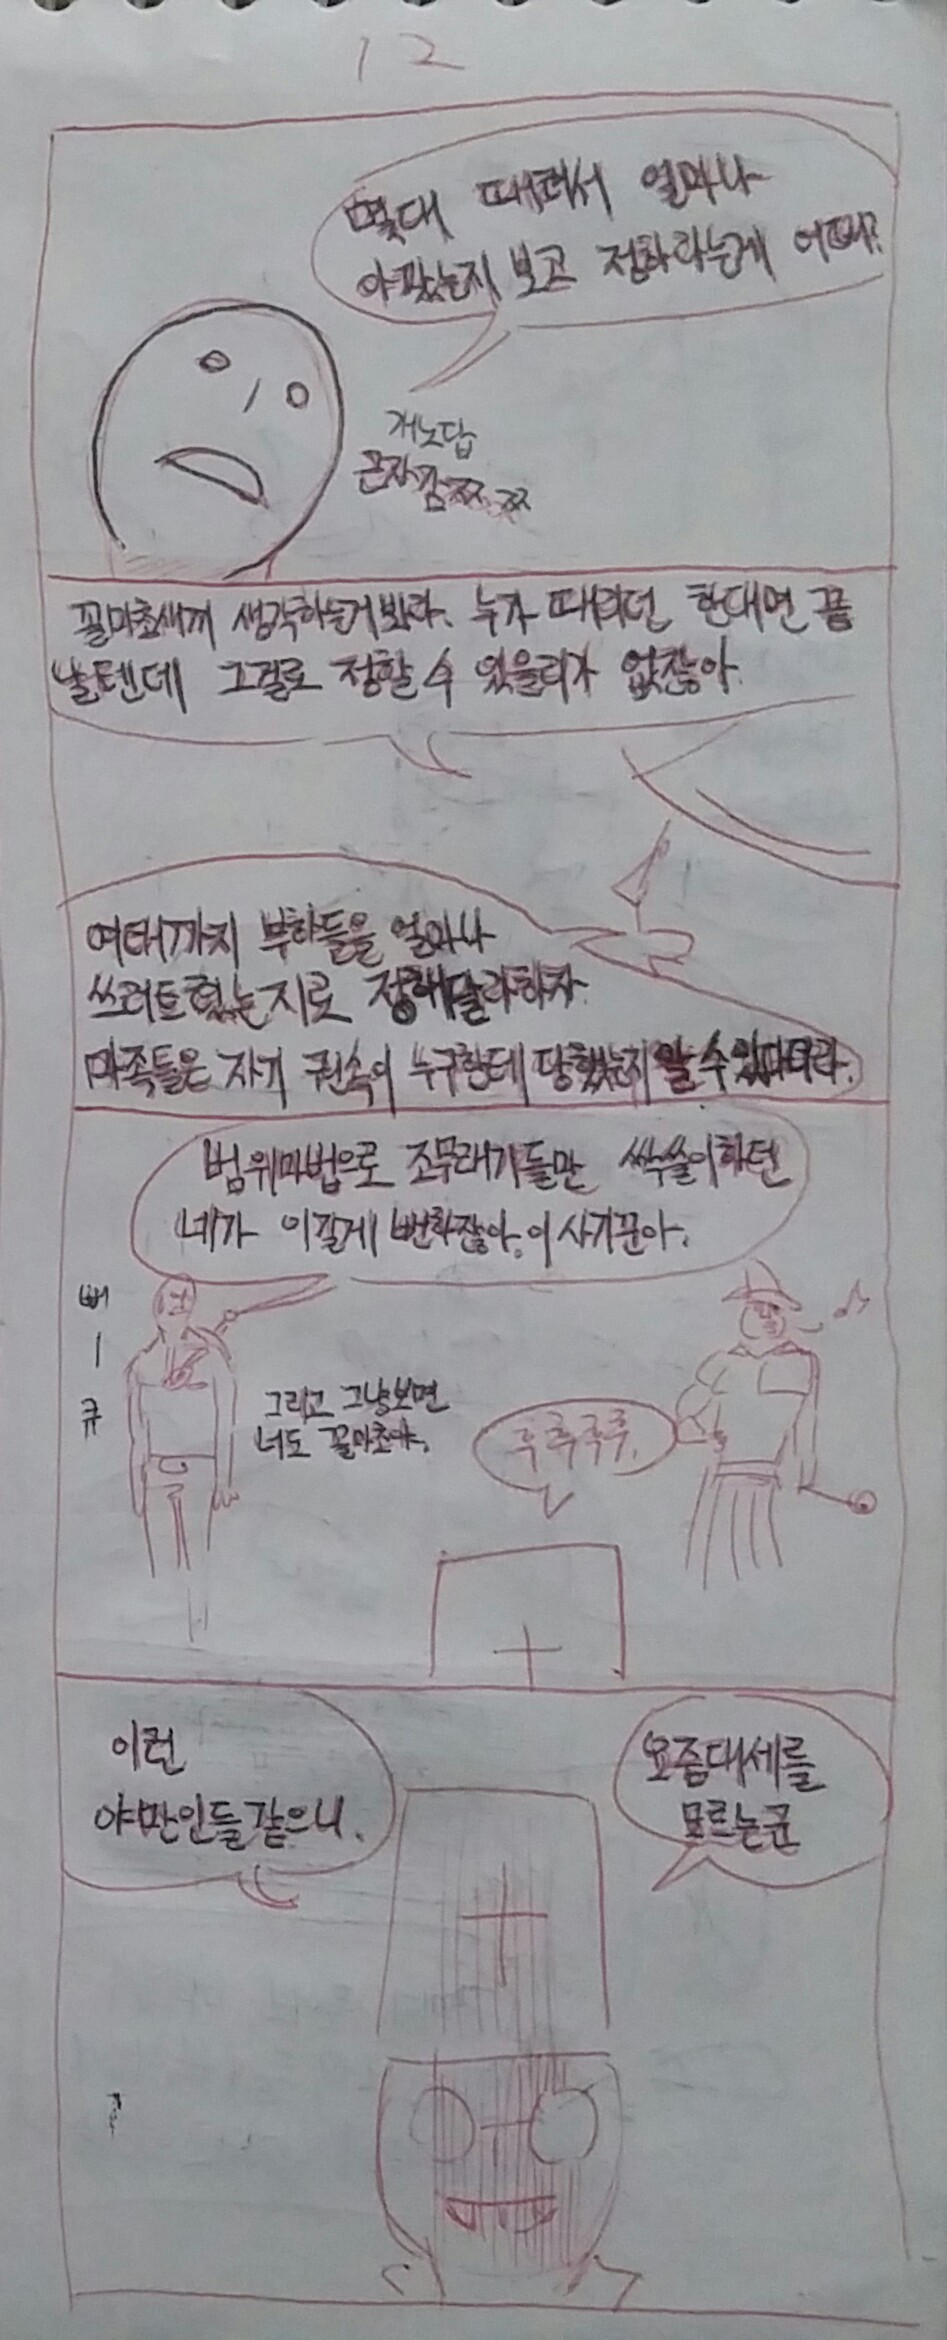 12
몇대 때려서 얼마나
아팠는지 보고 정하라는게 어때?
개노답
근자감 ㅉㅉ
꼴마초새끼 생각하는거봐라. 누가 때리던 한대면 끝
날텐데 그걸로 정할 수 있을리가 없잖아.
여태까지 부하들을 얼마나
쓰러트렸는지로 정해달라하자
마족들은 자기 권속이 누구한테 당했는지 알 수 있다더라.
범위마법으로 조무래기들만 싹쓸이하던
네가 이길게 뻔하잖아. 이 사기꾼아.
뻐
ㅣ
큐
그리고 그냥보면
너도 꼴마초야.
후후후후.
이런
야만인들 같으니.
요즘대세를
모르는군